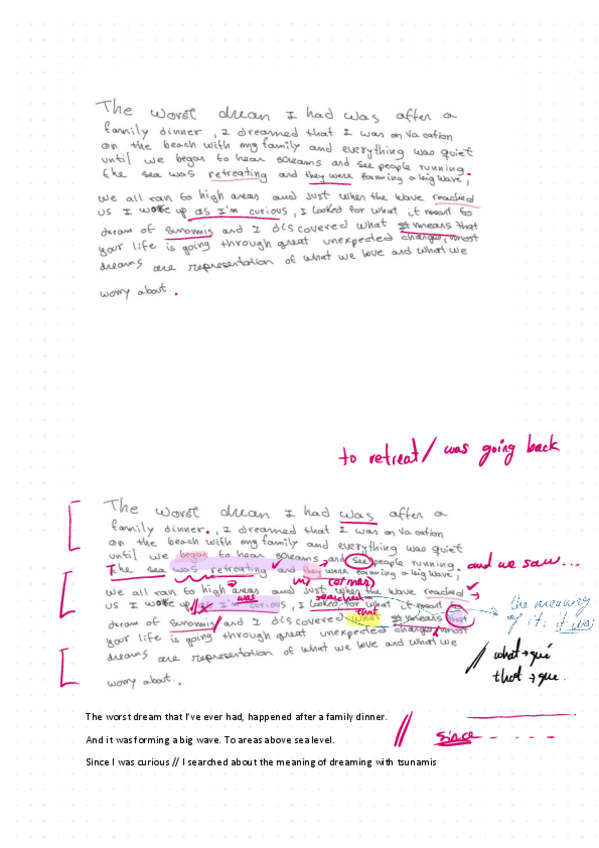 The worst dream I had was after a
family dinner, I dreamed that I was on Vacation
on the beach with my family and everything was quiet
until we began to hear screams and see people running.
the sea was retreating and they were forming a big wave,
we all ran to high areas and just when the wave reached
us I woke up as I'm curious, I looked for what it meant to
dream of sunomis and I discovered what it means that
your life is going through great unexpected changes, most
dreams are representation of what we love and what we
worry about.
to retreat/ was going back
The worst dream I had was after a
family dinner., I dreamed that I was on Vacation
on the beach with my family and everything was quiet
until we began to hear screams and see people running. and we saw...
The sea was retreating and they were forming a big wave,
we all ran to high areas and just when the wave reached
was searched
us I woke up // as I'm curious, I looked for what it meant to the meaning
that of it:
dream of sunomis and I discovered what it means that
your life is going through great unexpected changes, most
dreams are representation of what we love and what we // what → qué
that → que.
worry about.
The worst dream that I've ever had, happened after a family dinner.
And it was forming a big wave. To areas above sea level. // since - - - -
Since I was curious // I searched about the meaning of dreaming with tsunamis